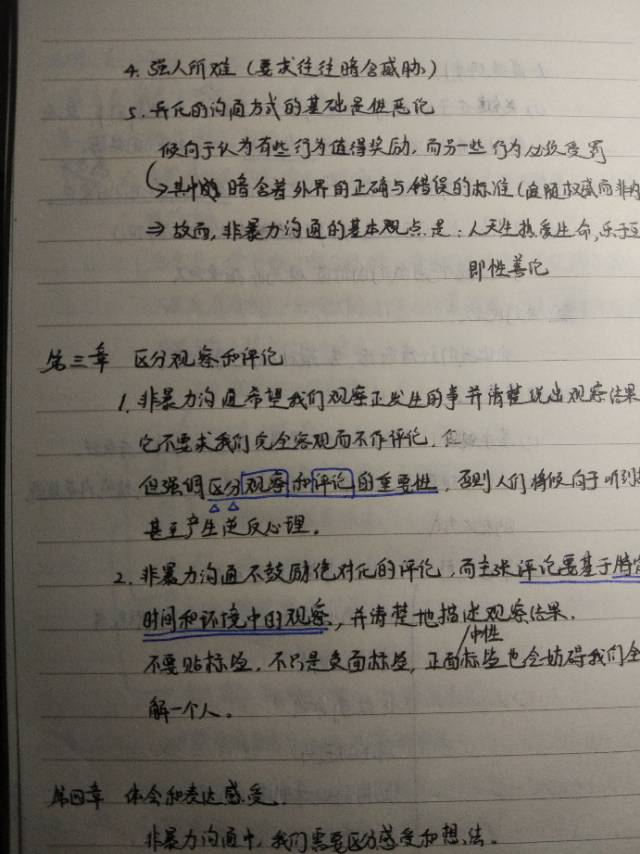 4. 强人所难（要求往往暗含威胁）
5. 异化的沟通方式的基础是性恶论
倾向于认为有些行为值得奖励，而另一些行为必须受罚
↳其中 暗含着外界的正确与错误的标准（遵照权威而非内
⇒ 故而，非暴力沟通的基本观点是：人天生热爱生命，乐于互
即性善论
第三章 区分观察和评论
1. 非暴力沟通希望我们观察正发生的事并清楚说出观察结果
它不要求我们完全客观而不作评论，
但强调区分观察和评论的重要性，否则人们将倾向于听到
甚至产生逆反心理。
2. 非暴力沟通不鼓励绝对化的评论，而主张评论要基于特定
时间和环境中的观察，并清楚地描述观察结果。
中性
不要贴标签，不只是负面标签，正面标签也会妨碍我们全
解一个人。
第四章 体会和表达感受.
非暴力沟通中，我们需要区分感受和想法。